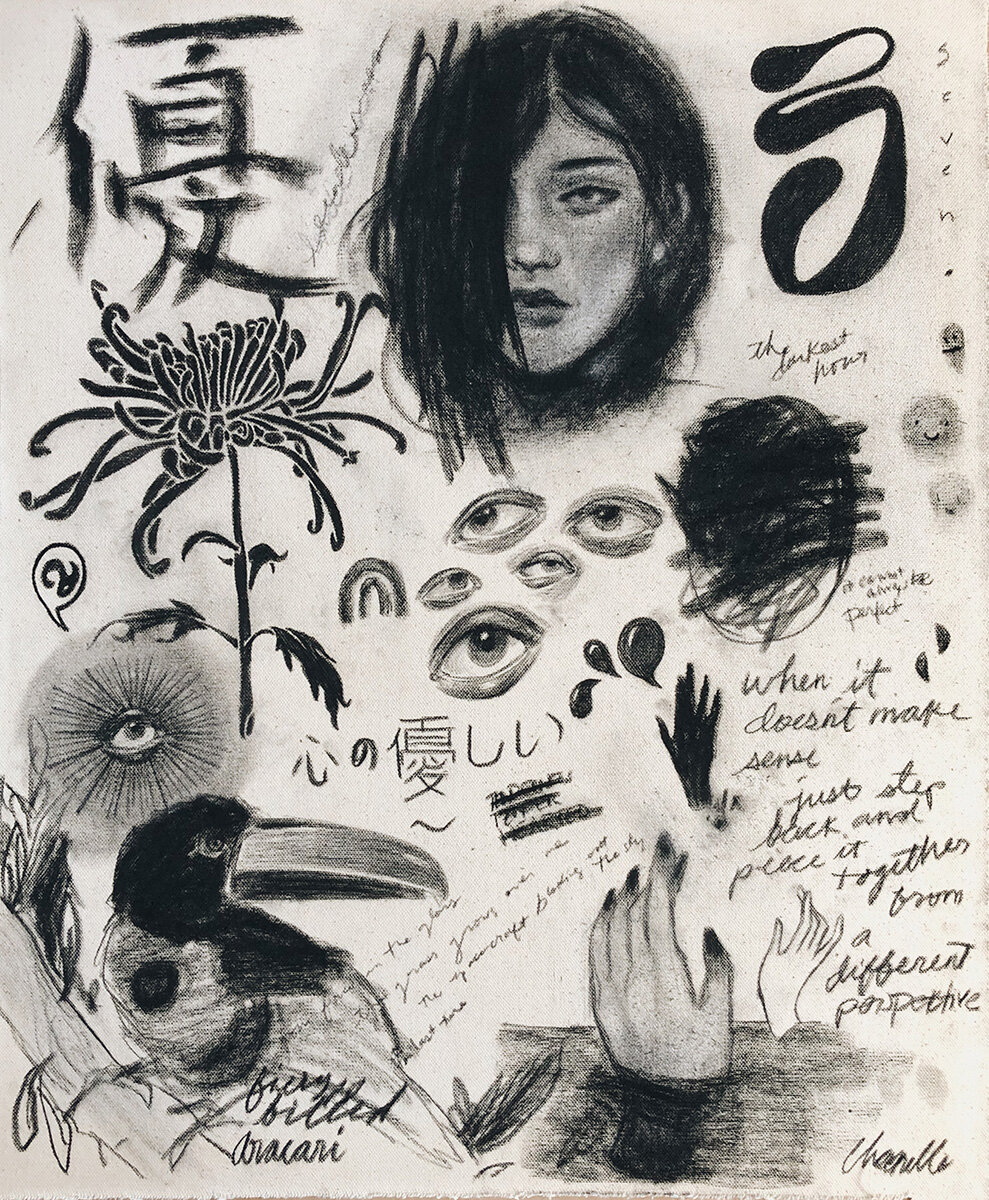 優
seven.
the
darkest
hour
it cannot
always be
perfect
when it
doesn't make
sense
just step
back and
piece it
together
from
a
different
perspective
心の優しい
~
the glass
grass grows over
the spacecraft blasting out the sky
billed
aracari
Chanelle